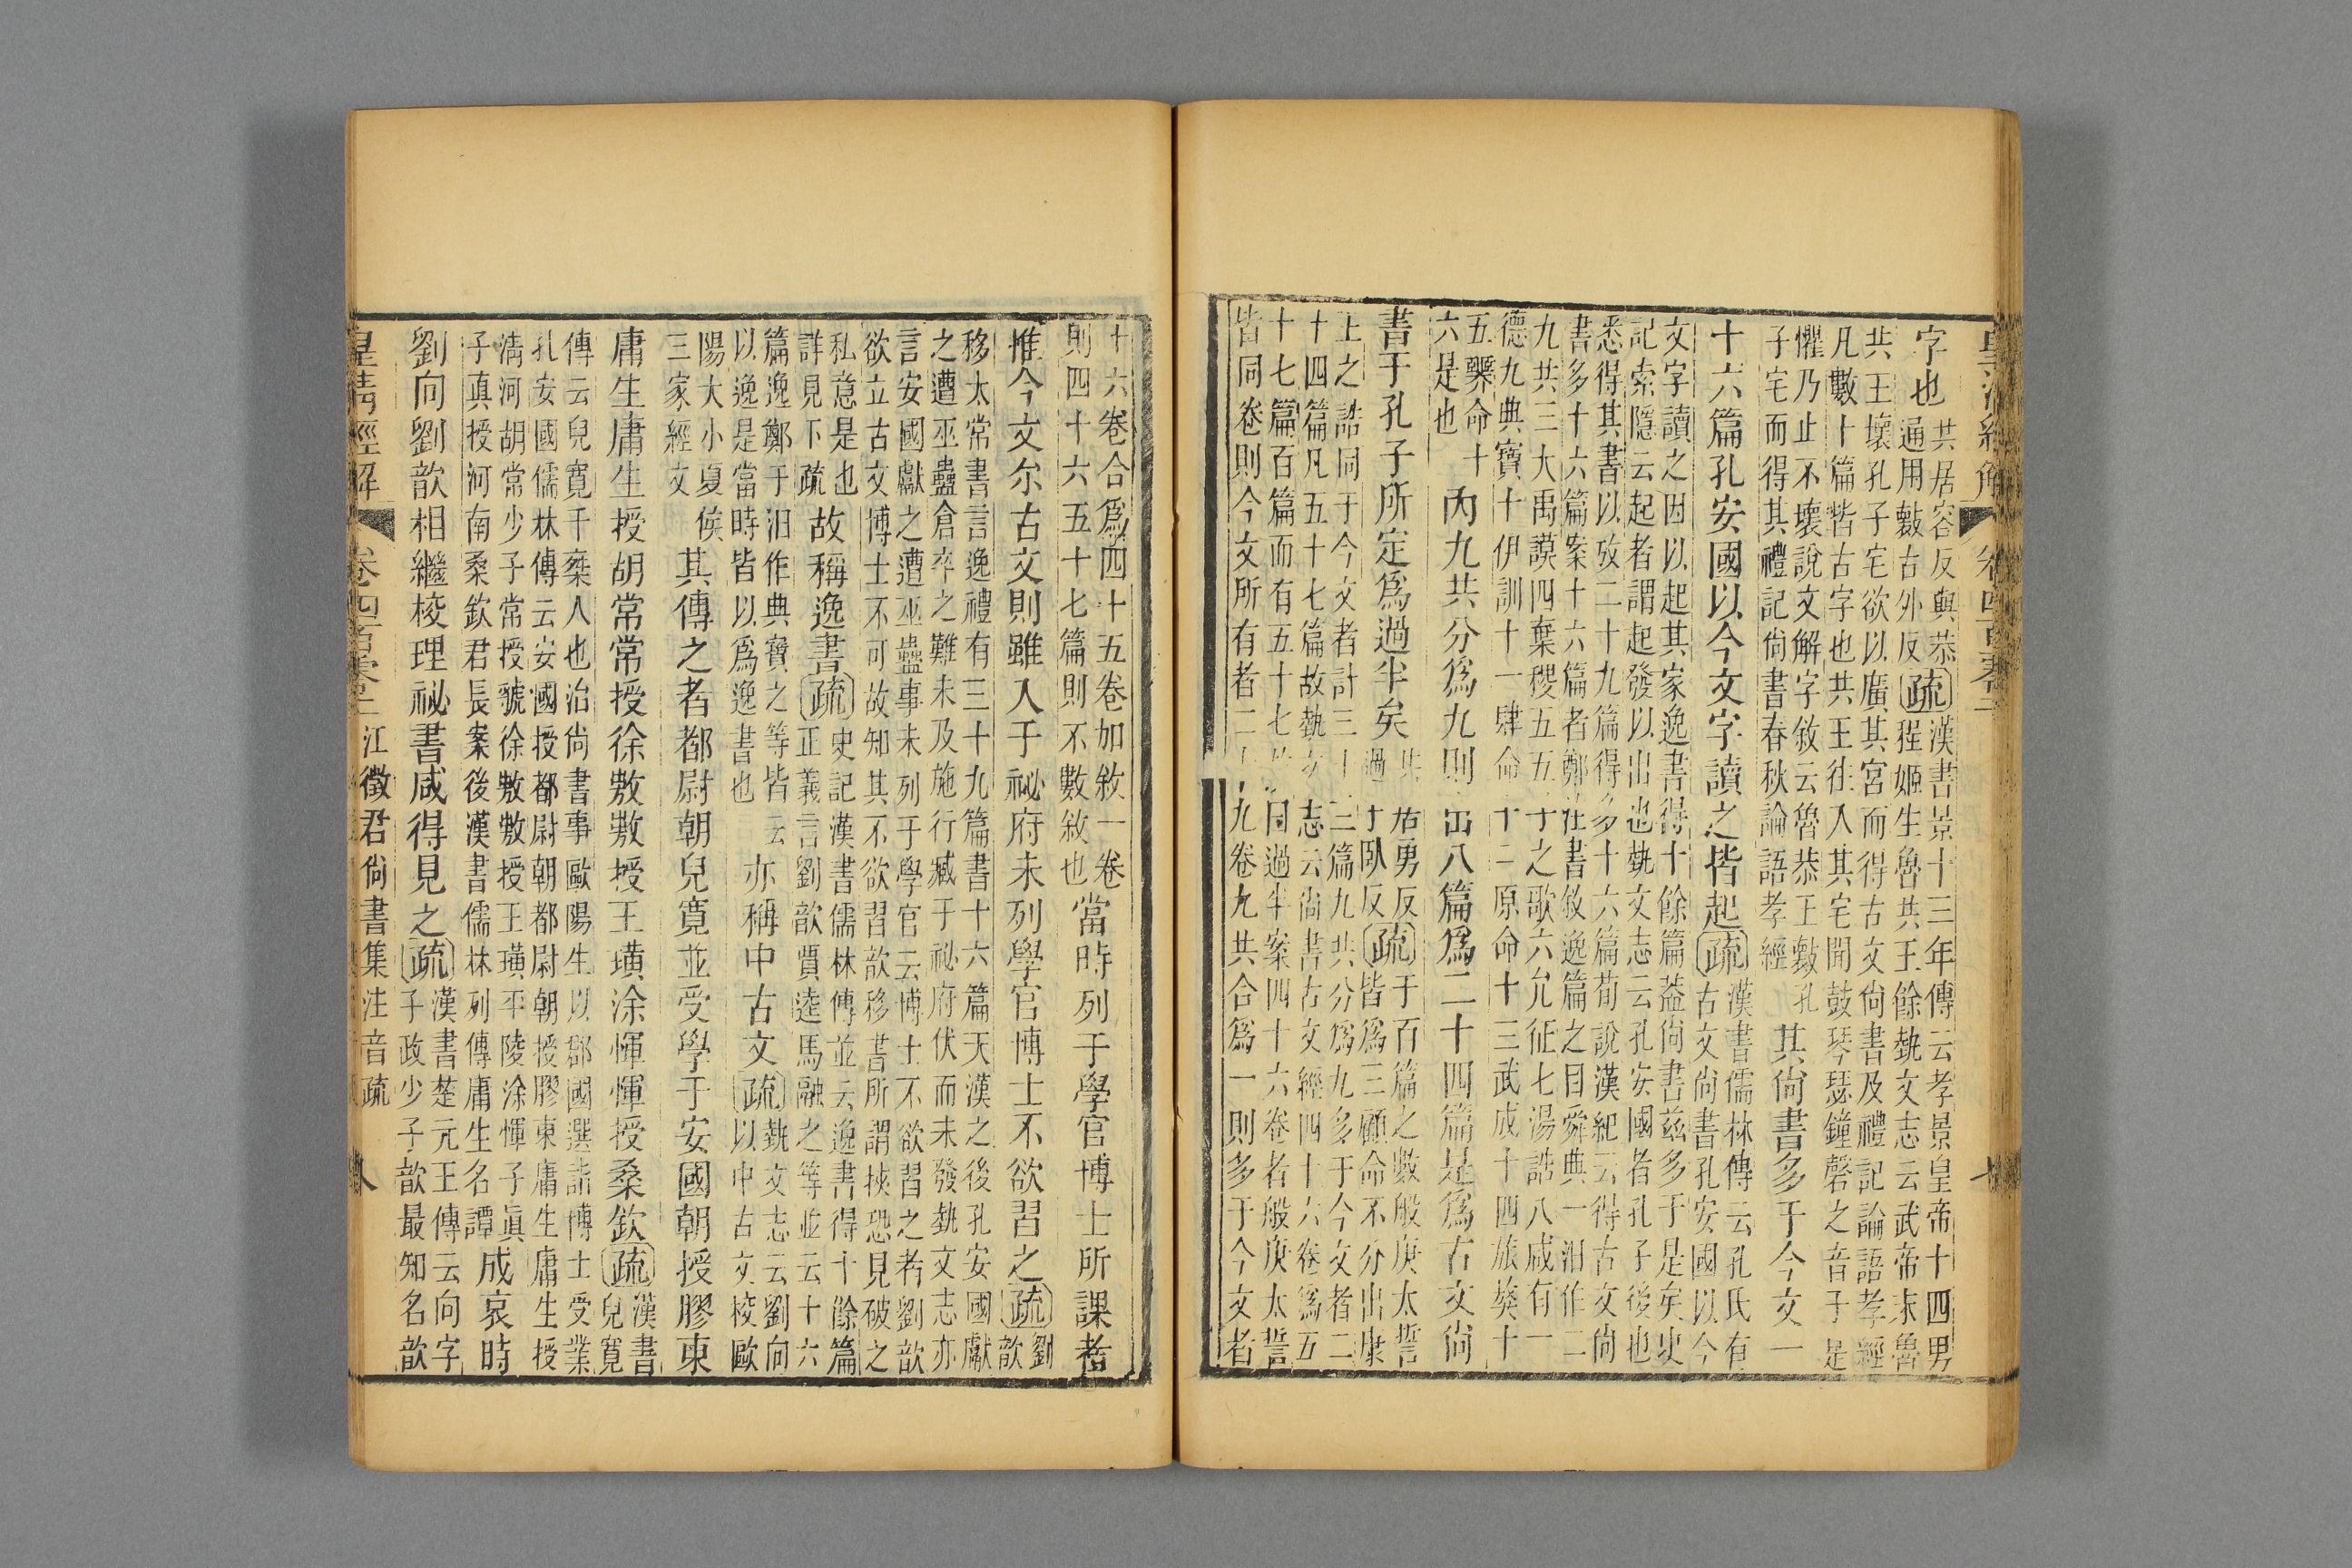 字也
共居容反與恭
通用㪴古外反
疏
漢書景十三年傳云孝景皇帝十四男
程姬生魯共王餘埶文志云武帝末魯
共王壞孔子宅欲以廣其宮而得古文尙書及禮記論語孝經
凡數十篇皆古字也共王往入其宅聞鼓琴瑟鐘磬之音于是
懼乃止不壞說文解字敘云魯恭王㪴孔
子宅而得其禮記尙書春秋論語孝經
其尙書多于今文一
十六篇孔安國以今文字讀之皆起
疏
漢書儒林傳云孔氏有
古文尙書孔安國以今
文字讀之因以起其家逸書得十餘篇葢尙書茲多于是矣史
記索隱云起者謂起發以出也埶文志云孔安國者孔子後也
悉得其書以攷二十九篇得多十六篇荀說漢紀云得古文尙
書多十六篇案十六篇者鄭注書敘逸篇之目舜典一汩作二
九共三大禹謨四棄稷五五子之歌六允征七湯誥八咸有一
德九典寶十伊訓十一肆命十二原命十三武成十四旅獒十
五臩命十
六是也
內九共分爲九則出八篇爲二十四篇是爲古文尙
書于孔子所定爲過半矣
共居勇反
過于臥反
疏
于百篇之數般庚太誓
皆爲三顧命不分出康
王之誥同于今文者計三十三篇九共分爲九多于今文者二
十四篇凡五十七篇故埶文志云尙書古文經四十六卷爲五
十七篇百篇而有五十七故曰過半案四十六卷者般庚太誓
皆同卷則今文所有者二十九卷九共合爲一則多于今文者
十六卷合爲四十五卷加敘一卷
則四十六五十七篇則不數敘也
當時列于學官博士所課者
惟今文尒古文則雖入于祕府未列學官博士不欲習之
疏
劉歆
移太常書言逸禮有三十九篇書十六篇天漢之後孔安國獻
之遭巫蠱倉卒之難未及施行臧于祕府伏而未發埶文志亦
言安國獻之遭巫蠱事未列于學官云博士不欲習之者劉歆
欲立古文博士不可故知其不欲習歆移書所謂挾恐見破之
私意是也
詳見下疏
故稱逸書
疏
史記漢書儒林傳並云逸書得十餘篇
正義言劉歆賈逵馬融之等並云十六
篇逸鄭于汩作典寶之等皆云
以逸是當時皆以爲逸書也
亦稱中古文
疏
埶文志云劉向
以中古文校歐
陽大小夏侯
三家經文
其傳之者都尉朝兒寬並受學于安國朝授膠東
庸生庸生授胡常常授徐敖敖授王璜涂惲惲授桑欽
疏
漢書
兒寬
傳云兒寬千椉人也治尙書事歐陽生以郡國選詣博士受業
孔安國儒林傳云安國授都尉朝都尉朝授膠東庸生庸生授
淸河胡常少子常授虢徐敖敖授王璜平陵涂惲子眞
子眞授河南桑欽君長案後漢書儒林列傳庸生名譚
成哀時
劉向劉歆相繼校理祕書咸得見之
疏
漢書楚元王傳云向字
子政少子歆最知名歆
皇淸經解
江徵君尙書集注音疏
八